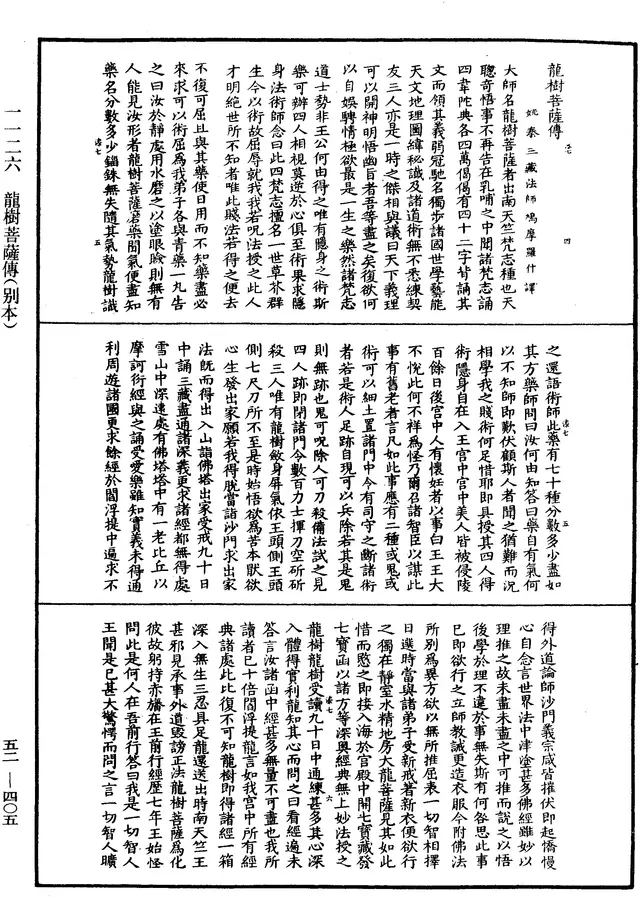 龍樹菩薩傳
姚秦三藏法師鳩摩羅什譯
大師名龍樹菩薩者出南天竺梵志種也天
聰奇悟事不再告在乳哺之中聞諸梵志誦
四韋陀典各四萬偈偈有四十二字背誦其
文而領其義弱冠馳名獨步諸國世學藝能
天文地理圖緯秘讖及諸道術無不悉練契
友三人亦是一時之傑相與議曰天下義理
可以開神明悟幽旨者吾等盡之矣復欲何
以自娛騁情極欲最是一生之樂然諸梵志
道士勢非王公何由得之唯有隱身之術斯
樂可辦四人相視莫逆於心俱至術家求隱
身法術師念曰此四梵志擅名一世草芥群
生今以術故屈辱就我我若呪法授之此人
才明絕世所不知者唯此賤法若得之便去
不復可屈且與其藥使日用而不知藥盡必
來求可以術屈為我弟子各與青藥一丸告
之曰汝於靜處用水磨之以塗眼瞼則無有
人能見汝形者龍樹菩薩磨藥聞氣便盡知
藥名分數多少錙銖無失隨其氣勢龍樹識
之還語術師此藥有七十種分數多少盡如
其方藥師問曰汝何由知答曰藥自有氣何
以不知師即歎伏顧斯人者聞之猶難而況
相學我之賤術何足惜耶即具授其四人得
術隱身自在入王宮中宮中美人皆被侵陵
百餘日後宮中人有懷妊者以事白王王大
不悅此何不祥為怪乃爾召諸智臣以謀此
事有舊老者言凡如此事應有二種或鬼或
術可以細土置諸門中令有司守之斷諸術
者若是術人足跡自現可以兵除若其是鬼
則無跡也鬼可呪除人可刀殺備法試之見
四人跡即閉諸門令數百力士揮刀空斫斫
殺三人唯有龍樹斂身屏氣依王頭側王頭
側七尺刀所不至是時始悟欲為苦本猒欲
心生發出家願若我得脫當詣沙門求出家
法既而得出入山詣佛塔出家受戒九十日
中誦三藏盡通諸深義更求諸經都無得處
雪山中深遠處有佛塔塔中有一老比丘以
摩訶衍經與之誦受愛樂雖知實義未得通
利周遊諸國更求餘經於閻浮提中遍求不
得外道論師沙門義宗咸皆摧伏即起憍慢
心自念言世界法中津塗甚多佛經雖妙以
理推之故未盡未盡之中可推而說之以悟
後學於理不違於事無失斯有何咎思此事
已即欲行之立師教誡更造衣服令附佛法
所別為異方欲以無所推屈表一切智相擇
日選時當與諸弟子受新戒著新衣便欲行
之獨在靜室水精地房大龍菩薩見其如此
惜而愍之即接入海於宮殿中開七寶藏發
七寶函以諸方等深奧經典無上妙法授之
龍樹龍樹受讀九十日中通練甚多其心深
入體得實利龍知其心而問之曰看經遍未
答言汝諸函中經甚多無量不可盡也我所
讀者已十倍閻浮提龍言如我宮中所有經
典諸處此比復不可知龍樹即得諸經一箱
深入無生三忍具足龍還送出時南天竺王
甚邪見承事外道毀謗正法龍樹菩薩為化
彼故躬持赤旛在王前行經歷七年王始怪
問此是何人在吾前行答曰我是一切智人
王聞是已甚大驚愕而問之言一切智人曠
一一二六 龍樹菩薩傳(别本)
五二—四〇五